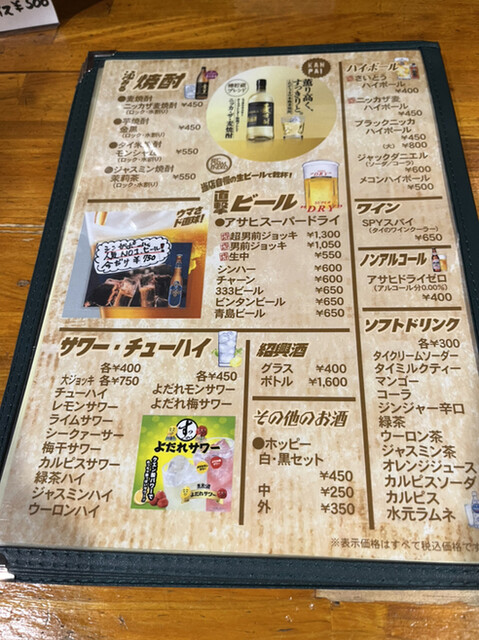 焼酎
●麦焼酎
ニッカザ麦焼酎 ¥450
(ロック・水割り)
●芋焼酎
金黒 ¥450
(ロック・水割り)
●タイ米焼酎
モンシャム ¥550
(ロック・水割り)
●ジャスミン焼酎
茉莉茶 ¥550
(ロック・水割り)
樽貯蔵
ブレンド
薫り高く、
すっきりと
ニッカ・ザ・麦焼酎
KAN
PAI
ハイボール
さいとう
ハイボール
¥400
ニッカザ麦
ハイボール
¥450
ブラックニッカ
ハイボール
¥450
(大) ¥800
ジャックダニエル
(ソーダ・コーラ)
¥600
メコンハイボール
¥500
当店自慢の生ビールで乾杯!
直撃 ビール
DRY
●アサヒスーパードライ
超男前ジョッキ ¥1,300
男前ジョッキ ¥1,050
生中 ¥550
シンハー ¥600
チャーン ¥600
333ビール ¥650
ビンタンビール ¥650
青島ビール ¥650
ウマミ
ド直球!
人気NO1ビール
今だけ¥750
ワイン
SPYスパイ
(タイのワインクーラー)
¥650
ノンアルコール
アサヒドライゼロ
(アルコール分0.00%)
¥400
サワー・チューハイ
大ジョッキ 各¥450
各¥750
チューハイ
レモンサワー
ライムサワー
シークァーサー
梅干サワー
カルピスサワー
緑茶ハイ
ジャスミンハイ
ウーロンハイ
よだれモンサワー
よだれ梅サワー
す
よだれサワー
よだれサワー
紹興酒
グラス ¥400
ボトル ¥1,600
その他のお酒
●ホッピー
白・黒セット
¥450
中 ¥250
外 ¥350
ソフトドリンク
各¥300
タイクリームソーダー
タイミルクティー
マンゴー
コーラ
ジンジャー辛口
緑茶
ウーロン茶
ジャスミン茶
オレンジジュース
カルピスソーダ
カルピス
水元ラムネ
※表示価格はすべて税込価格です